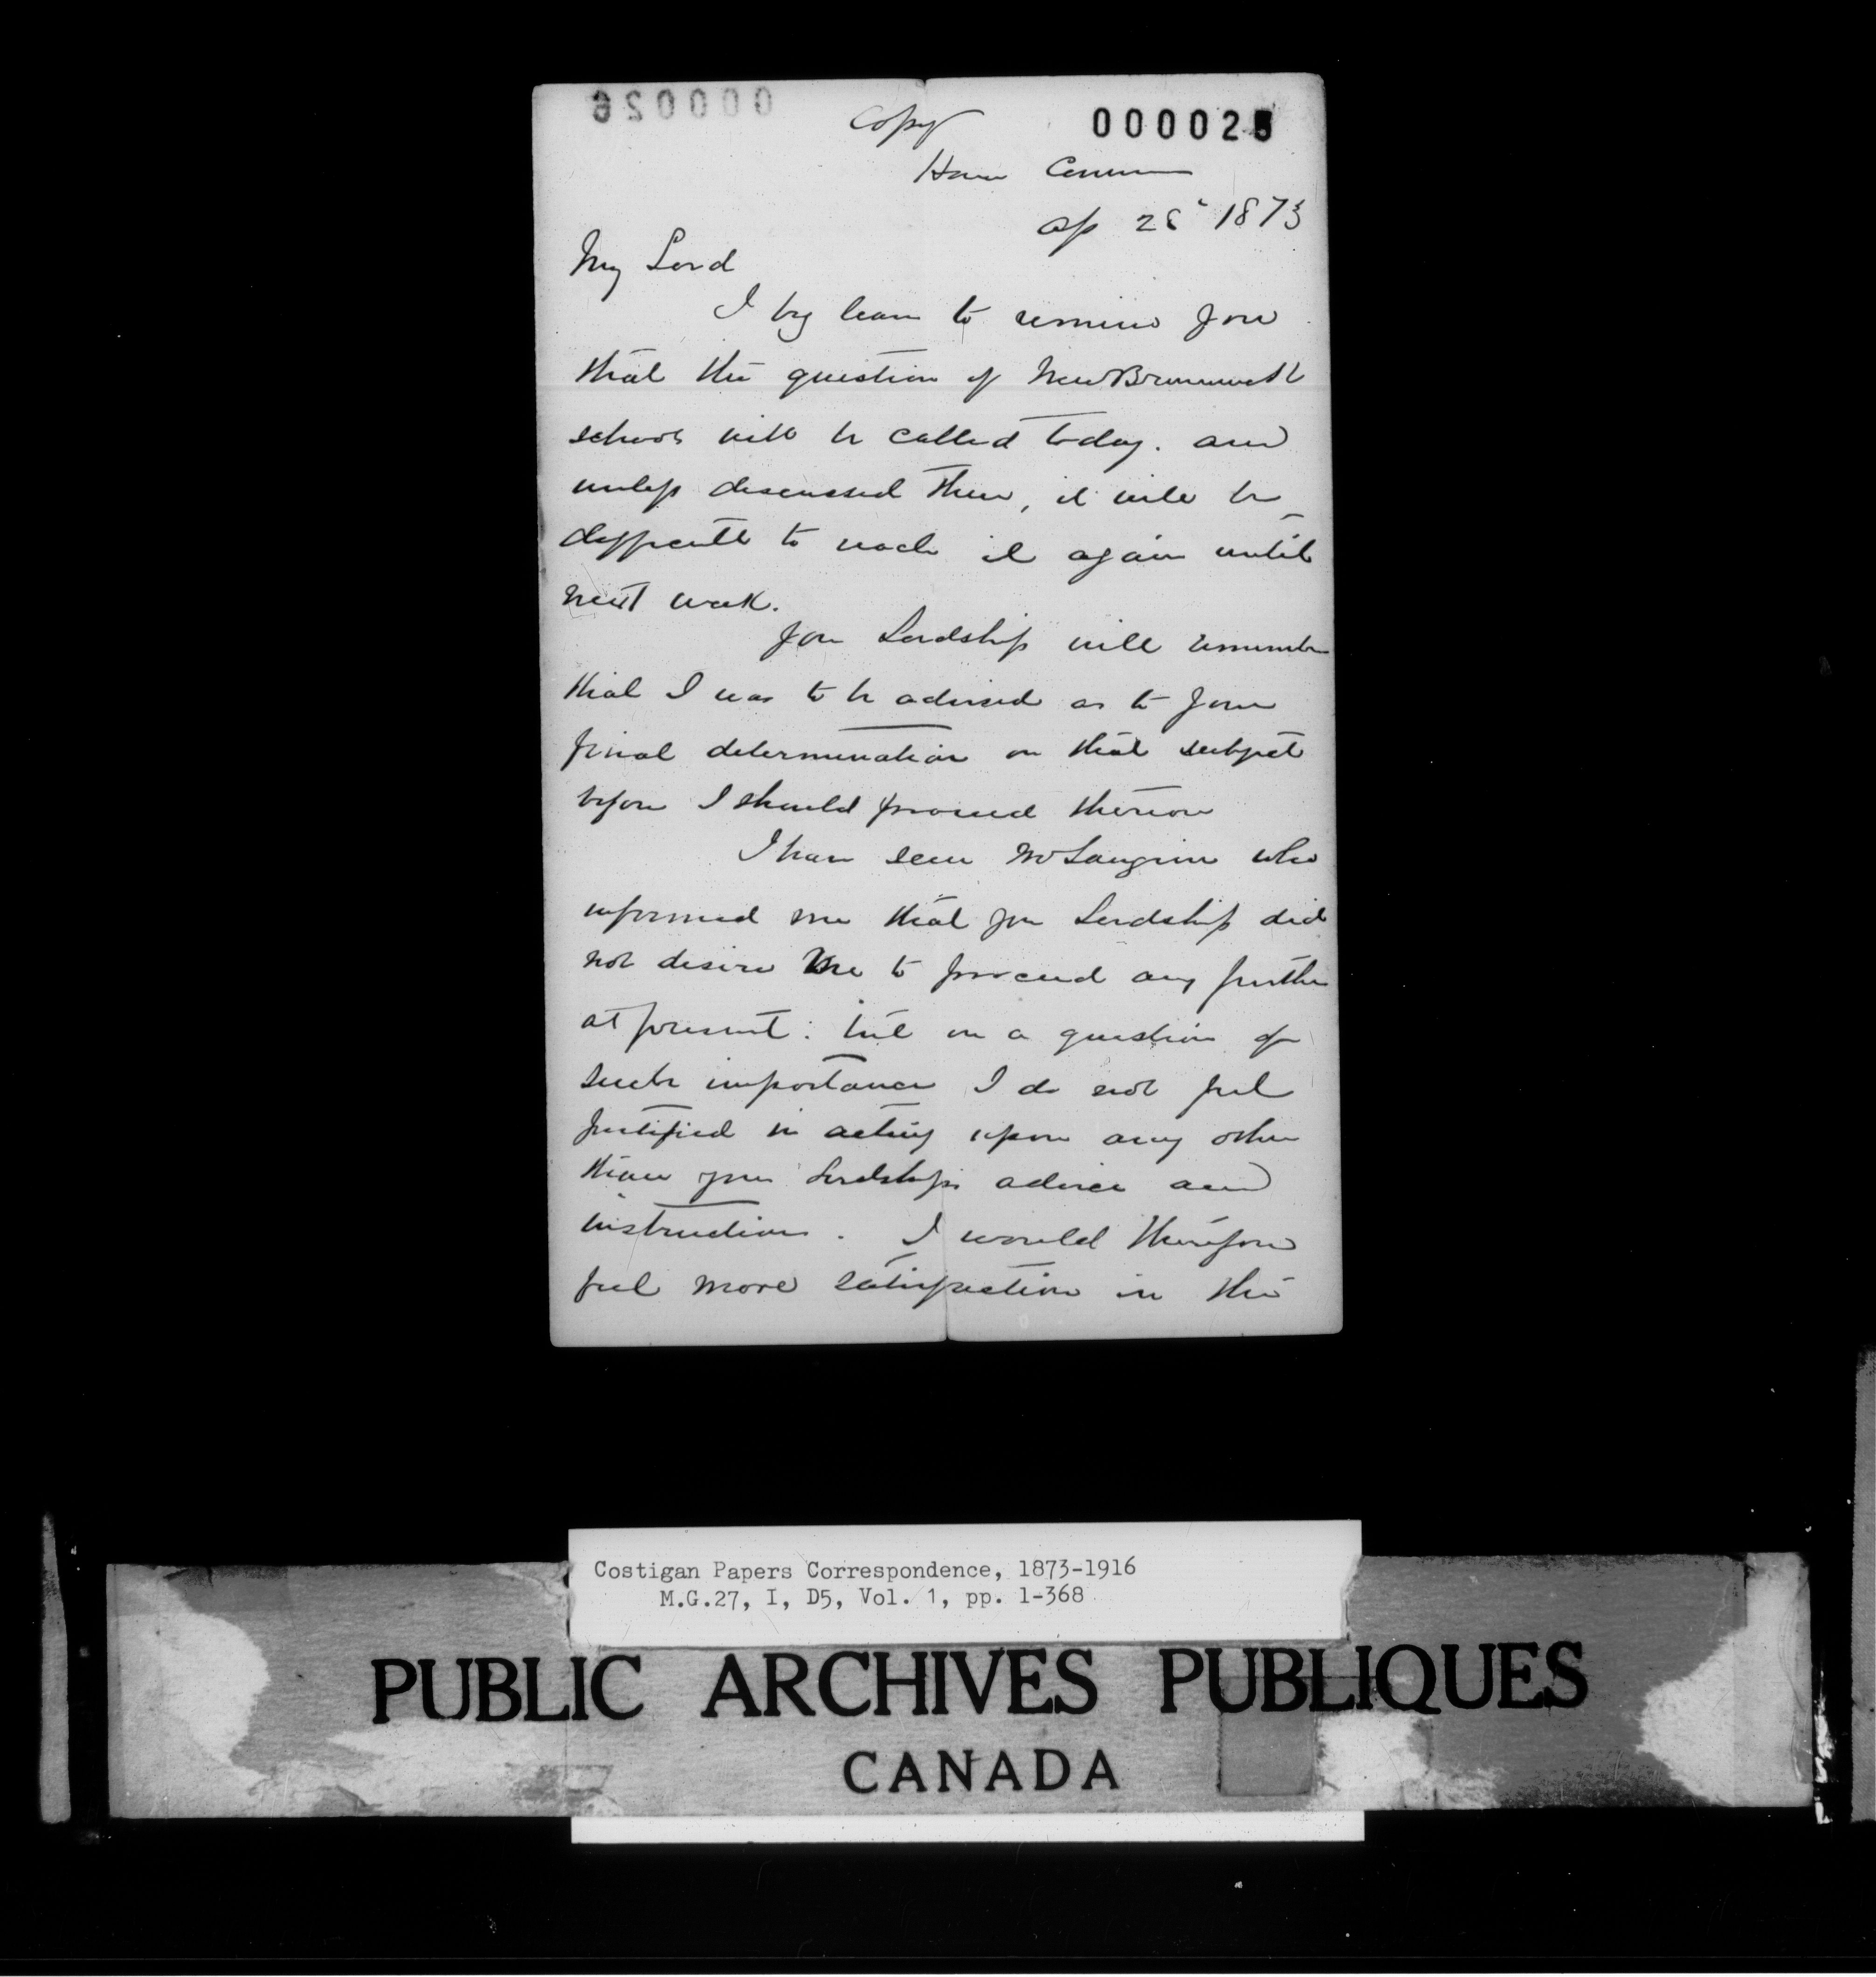 000026
Copy
000025
House Commons
Ap 28 1873
My Lord
I beg leave to remind you
that the question of New Brunswick
schools will be called today. and
unless discussed then, it will be
difficult to reach it again until
next week.
Your Lordship will remember
that I was to be advised as to your
final determination on that subject
before I should proceed thereon
I have seen Mr Langevin who
informed me that your Lordship did
not desire me to proceed any further
at present: but on a question of
such importance I do not feel
justified in acting upon any other
than your Lordships advice and
instructions. I would therefore
feel more satisfaction in the
Costigan Papers Correspondence, 1873-1916
M.G.27, I, D5, Vol. 1, pp. 1-368
PUBLIC ARCHIVES PUBLIQUES
CANADA